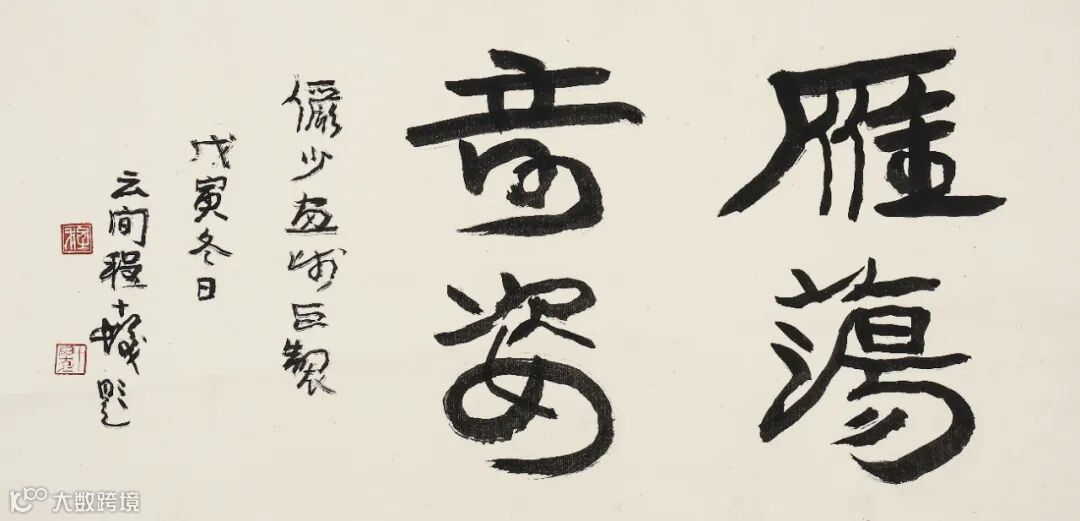 雁蕩
奇姿
儼少畫師巨製
戊寅冬日
云间程十髮题
大数跨境